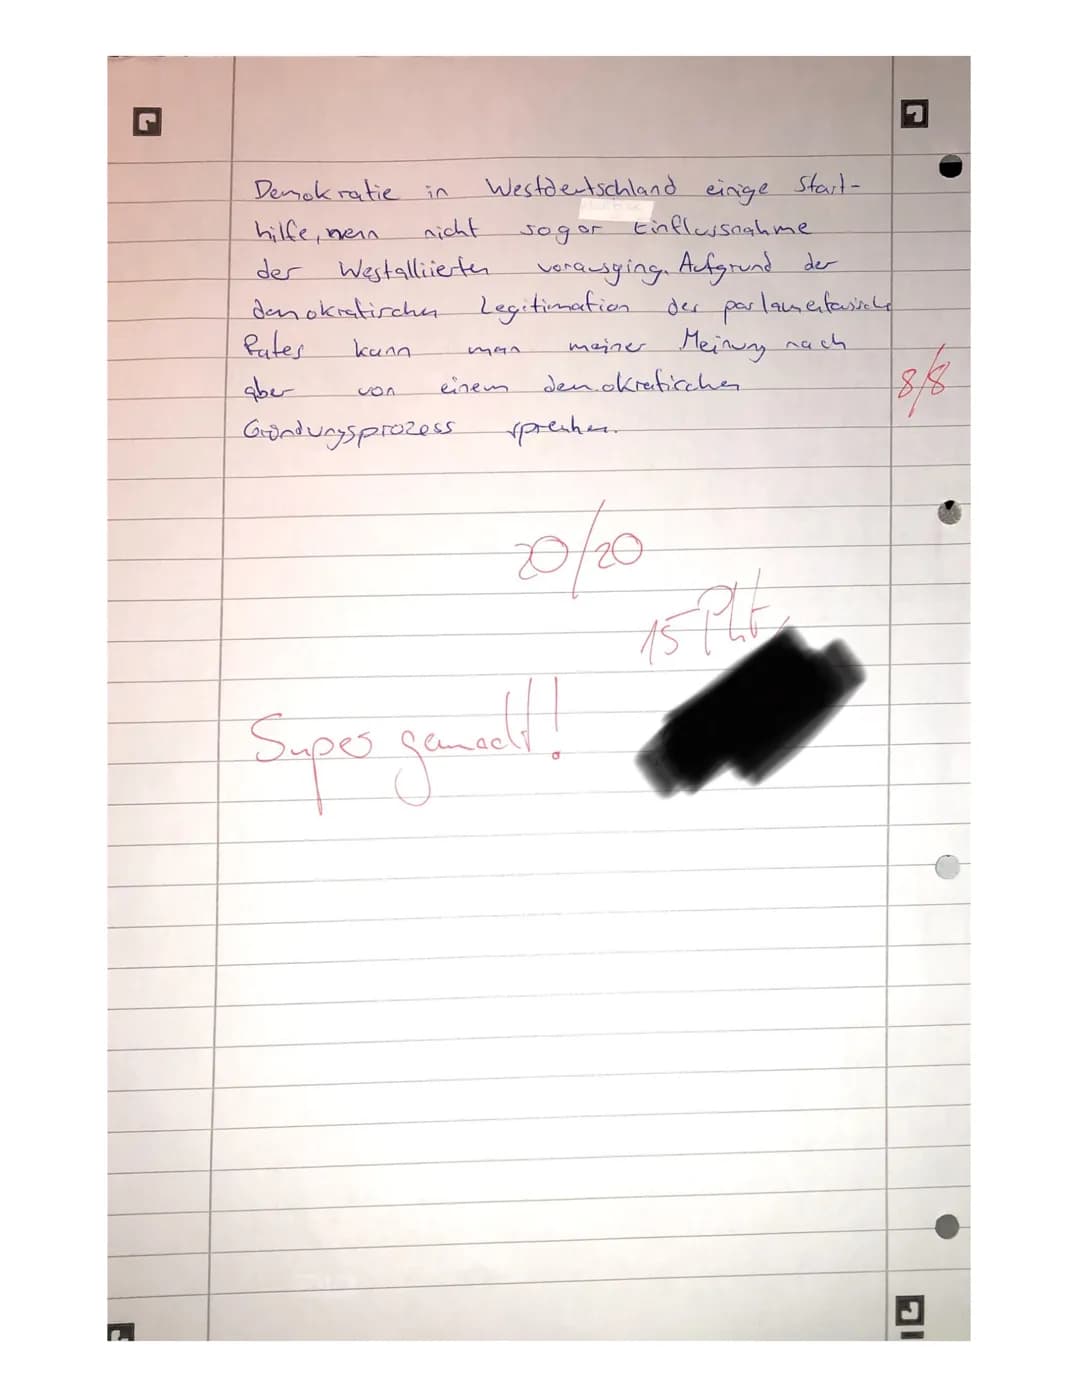 Demokratie in Westdeutschland einige Start-
hilfe, wenn nicht sogar Einflussnahme
der Westalliierten vorausging. Aufgrund der
demokratischen Legitimation des parlamentarischen
Rates kann man meiner Meinung nach
aber von einem demokratischen
Gründungsprozess sprechen.
8/8
20/20
15 Pkt.
Super gemacht!